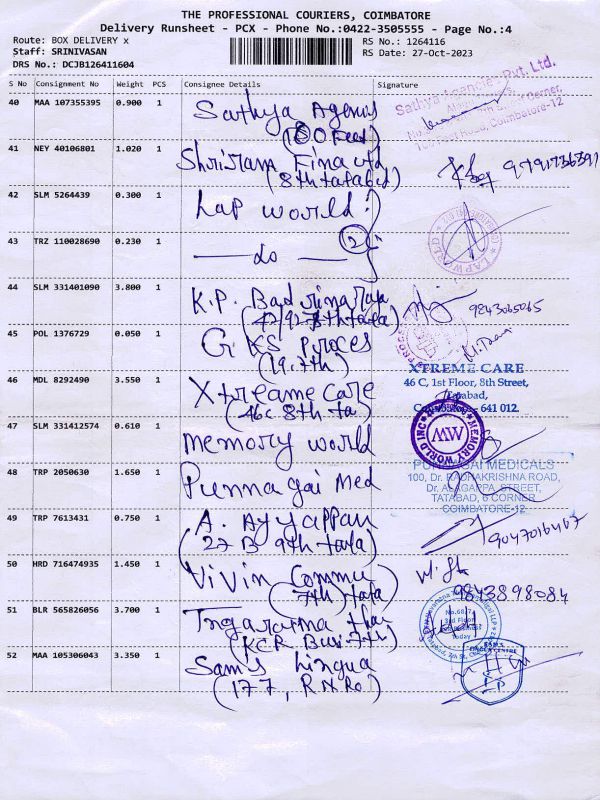 THE PROFESSIONAL COURIERS, COIMBATORE
Delivery Runsheet - PCX - Phone No.:0422-3505555 - Page No.:4
Route: BOX DELIVERY x
Staff: SRINIVASAN
DRS No.: DCJB126411604
RS No.: 1264116
RS Date: 27-Oct-2023
S No Consignment No Weight PCS Consignee Details Signature
40 MAA 107355395 0.900 1 Sathya Agencies
(100 Feet)
Sathya Agencies Pvt. Ltd.
Coimbatore-12
41 NEY 40106801 1.020 1 Shriram Fina Ltd
(8th tatabad)
42 SLM 5264439 0.300 1 Lap world
43 TRZ 110028690 0.230 1 — do — 2
LAP WORLD
44 SLM 331401090 3.800 1 K.P. Badrinaraya
9843065065
45 POL 1376729 0.050 1 GKS Proces
(19, 7th)
46 MDL 8292490 3.550 1 Xtreame care
(46c 8th ta)
XTREME CARE
46 C, 1st Floor, 8th Street,
Tatabad,
Coimbatore - 641 012.
47 SLM 331412574 0.610 1 memory world
MEMORY WORLD INC
MW
48 TRP 2050630 1.650 1 Punnagai Med
PUNNAGAI MEDICALS
100, Dr. RADHAKRISHNA ROAD,
Dr. ALAGAPPA STREET,
TATABAD, 6 CORNER,
COIMBATORE-12
49 TRP 7613431 0.750 1 A. Ayyappan
(27 B 9th tata)
9047016467
50 HRD 716474935 1.450 1 Vivin Commu
(7th tata)
9843898084
51 BLR 565826056 3.700 1
(KCR Busi 7th)
52 MAA 105306043 3.350 1 Sam's Lingua
(177, R N Ro)